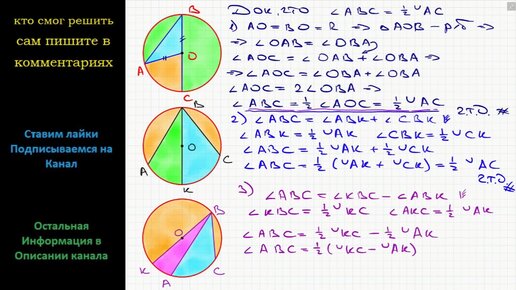 кто смог решить
сам пишите в
комментариях
Ставим лайки
Подписываемся на
Канал
Остальная
Информация в
Описании канала
B
A
O
C
B
O
A
C
K
B
O
K
A
C
Док. что ∠ABC = ½ ◡AC
1) AO = BO = R ⇒ △AOB – р/б ⇒
⇒ ∠OAB = ∠OBA
∠AOC = ∠OAB + ∠OBA ⇒
⇒ ∠AOC = ∠OBA + ∠OBA
∠AOC = 2∠OBA ⇒
∠ABC = ½ ∠AOC = ½ ◡AC
ч.т.д.
2) ∠ABC = ∠ABK + ∠CBK
∠ABK = ½ ◡AK ∠CBK = ½ ◡CK
∠ABC = ½ ◡AK + ½ ◡CK
∠ABC = ½ (◡AK + ◡CK) = ½ ◡AC
ч.т.д.
3) ∠ABC = ∠KBC – ∠ABK
∠KBC = ½ ◡KC ∠AKC = ½ ◡AK
∠ABC = ½ ◡KC – ½ ◡AK
∠ABC = ½ (◡KC – ◡AK)